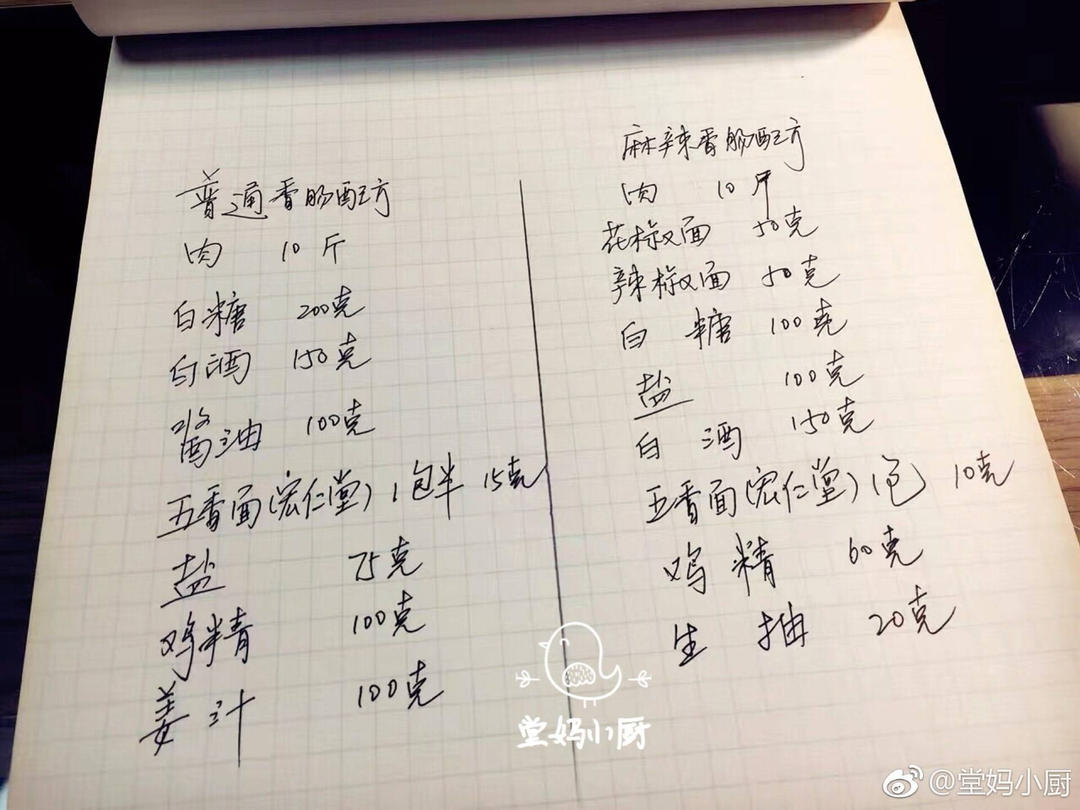 普通香肠配方
肉 10斤
白糖 200克
白酒 150克
酱油 100克
五香面(宏仁堂)1包半 15克
盐 75克
鸡精 100克
姜汁 100克
麻辣香肠配方
肉 10斤
花椒面 50克
辣椒面 50克
白糖 100克
盐 100克
白酒 150克
五香面(宏仁堂)1包 10克
鸡精 60克
生抽 20克
堂妈小厨
@堂妈小厨